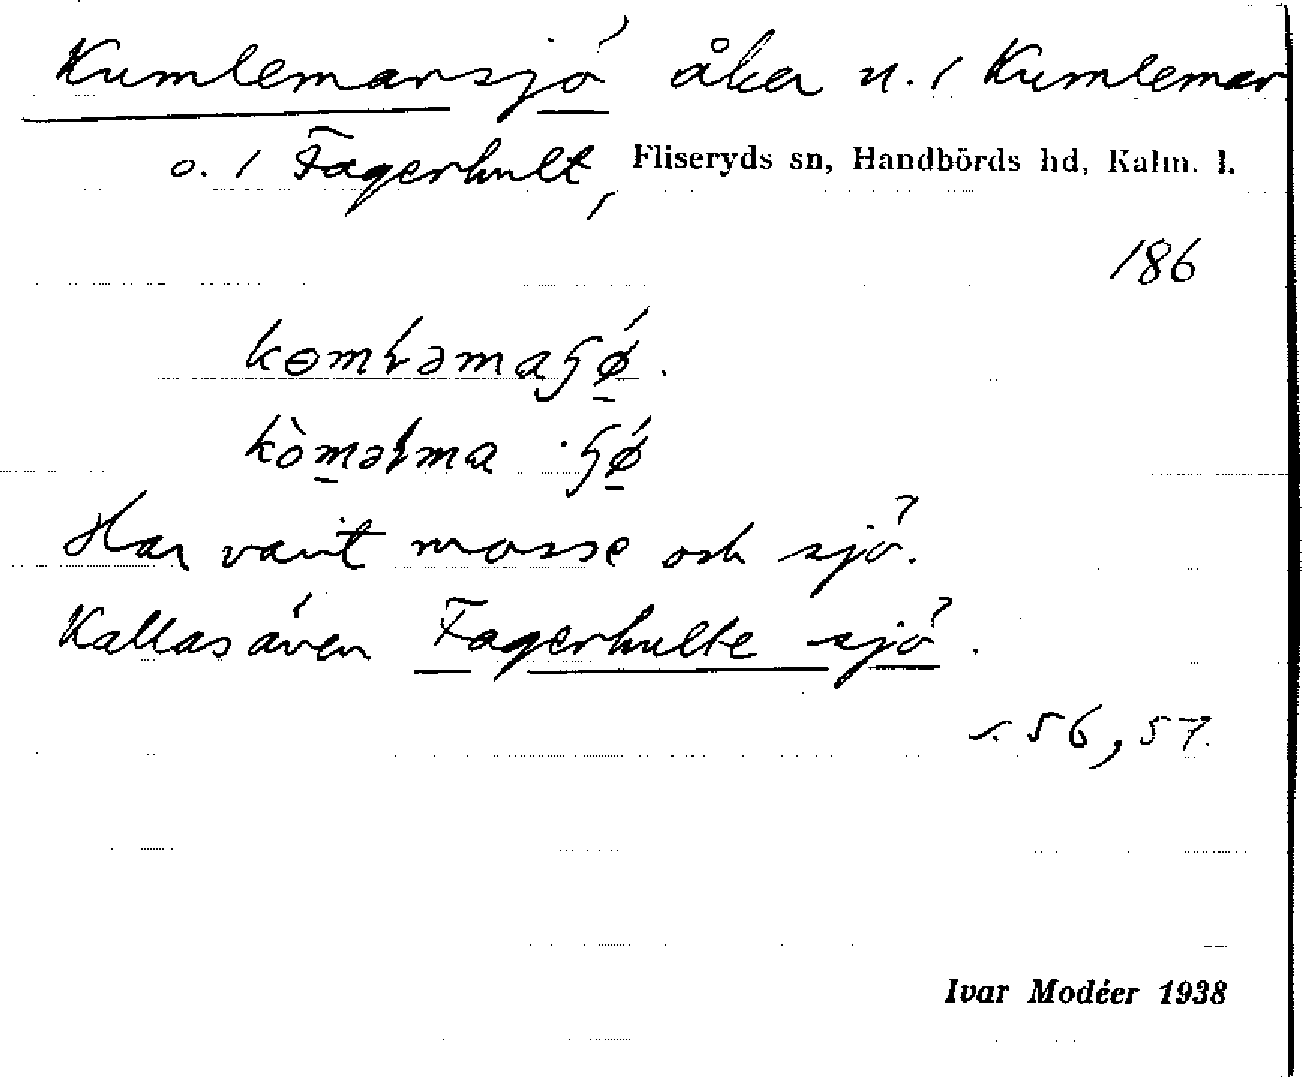 Kumlemarsjö åker n. / Kumlemar
o. / Fagerhult, Fliseryds sn, Handbörds hd, Kalm. l.
186
Har varit mosse och sjö.
Kallas även Fagerhulte sjö.
s. 56, 57.
Ivar Modéer 1938